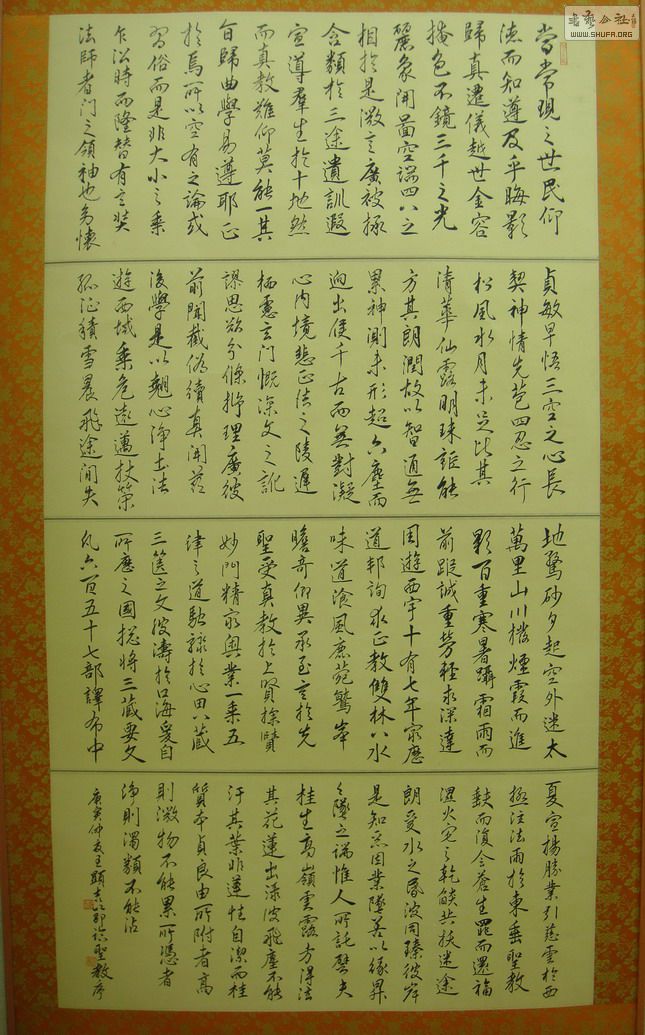 當常現之世民仰
德而知遵及乎晦影
歸真遷儀越世金容
掩色不鏡三千之光
麗象開圖空端四八之
相於是微言廣被拯
含類於三途遺訓遐
宣導群生於十地然
而真教難仰莫能一其
旨歸曲學易遵耶正
於焉所以空有之論或
習俗而是非大小之乘
乍沿時而隆替有玄奘
法師者門之領袖也幼懷
貞敏早悟三空之心長
契神情先苞四忍之行
松風水月未足比其
清華仙露明珠詎能
方其朗潤故以智通無
累神測未形超六塵而
迥出隻千古而無對凝
心內境悲正法之陵遲
栖慮玄門慨深文之訛
謬思欲分條析理廣彼
前聞截偽續真開茲
後學是以翹心淨土法
遊西域乘危遠邁杖策
孤征積雪晨飛途間失
地驚砂夕起空外迷天
萬里山川撥煙霞而進
影百重寒暑躡霜雨而
前蹤誠重勞輕求深達
周遊西宇十有七年窮歷
道邦詢求正教雙林八水
味道湌風鹿菀鷲峯
瞻奇仰異承至言於先
聖受真教於上賢探賾
妙門精窮奧業一乘五
律之道馳驟於心田八藏
三篋之文波濤於口海爰自
所歷之國總將三藏要文
凡六百五十七部譯布中
夏宣揚勝業引慈雲於西
極注法雨於東垂聖教
缺而復全蒼生罪而還福
濕火宅之乾焰共拔迷途
朗愛水之昏波同臻彼岸
是知惡因業墜善以緣昇
昇墜之端惟人所託譬夫
桂生高嶺雲露方得泫
其花蓮出淥波飛塵不能
汙其葉非蓮性自潔而桂
質本貞良由所附者高
則微物不能累所憑者
淨則濁類不能沾
庚寅仲 王 節臨聖教序
書藝公社
WWW.SHUFA.ORG